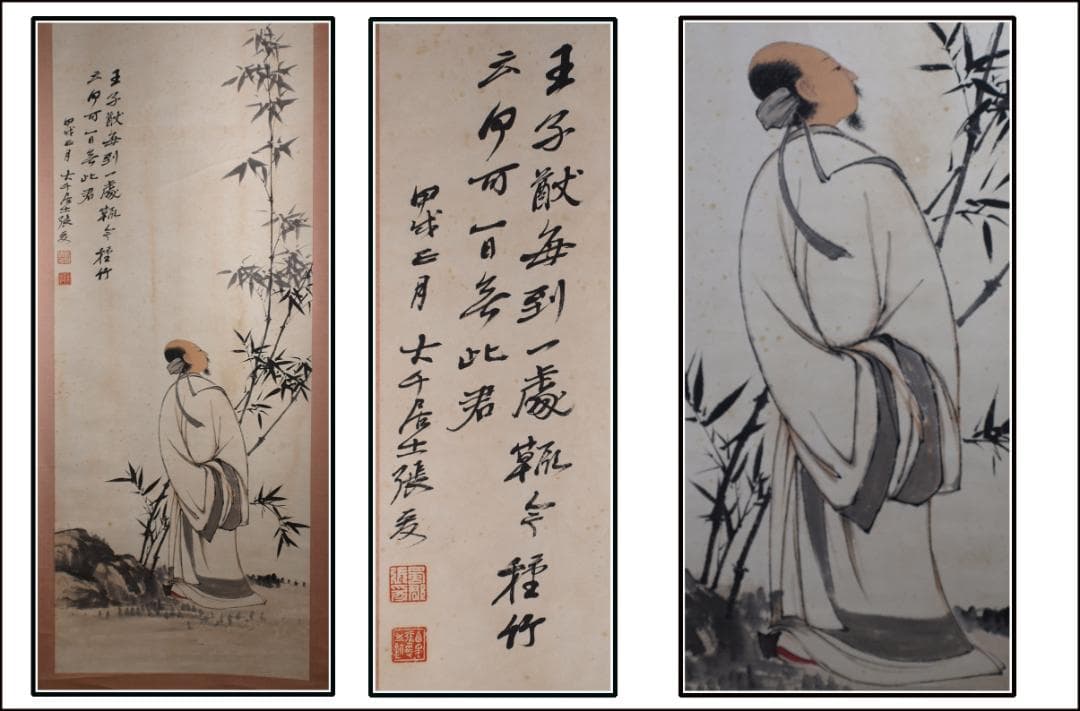 王子猷每到一處輒令種竹
云何可一日無此君
甲戌正月 大千居士張爰
王子猷每到一處輒令種竹
云何可一日無此君
甲戌正月 大千居士張爰